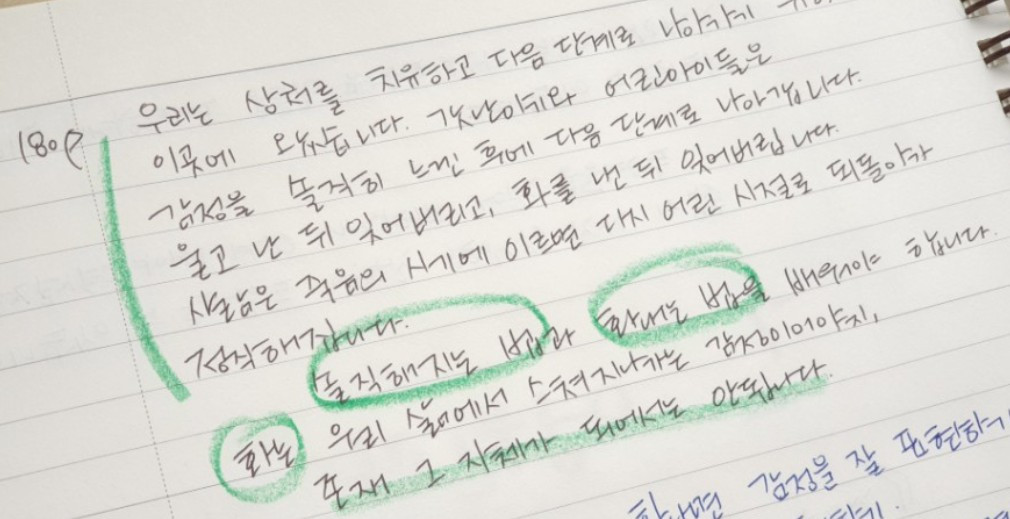 180p
우리는 상처를 치유하고 다음 단계로 나아가기
이곳에 오셨습니다. 갓난아기와 어린아이들은
감정을 솔직히 느낀 후에 다음 단계로 나아갑니다.
울고 난 뒤 잊어버리고, 화를 낸 뒤 잊어버립니다.
사람은 죽음의 시기에 이르면 다시 어린 시절로 되돌아가
정직해집니다.
솔직해지는 법과 화내는 법을 배워야 합니다.
화는 우리 삶에서 스쳐지나가는 감정이어야지,
존재 그 자체가 되어서는 안됩니다.
화나면 감정을 잘 표현하기